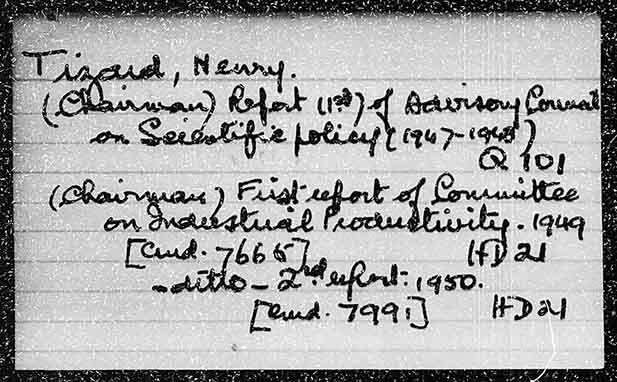 Tizard, Henry.
(Chairman) Report (1st) of Advisory Council
on Scientific policy (1947-1948)
Q 101
(Chairman) First report of Committee
on Industrial Productivity. 1949
[Cmd. 7665] HD 21
- ditto - 2nd report: 1950.
[Cmd. 7991] HD 21